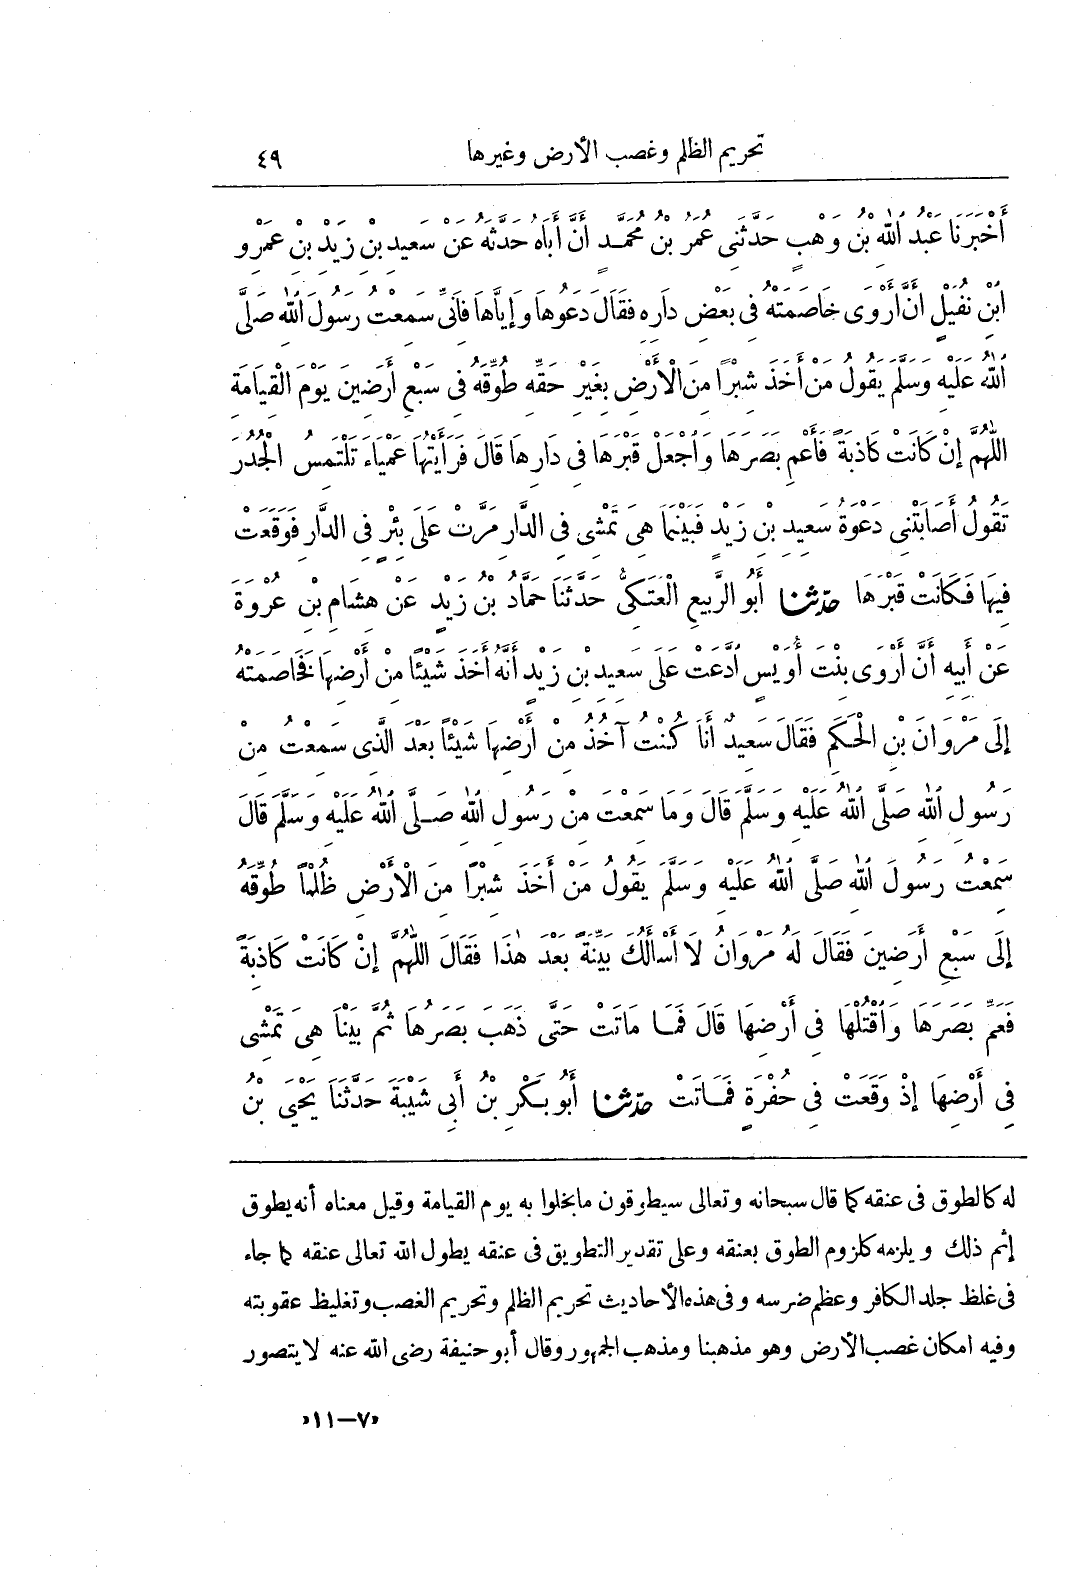 تحريم الظلم وغصب الأرض وغيرها ٤٩
أَخْبَرَنَا عَبْدُ اللهِ بْنُ وَهْبٍ حَدَّثَنِى عُمَرُ بْنُ مُحَمَّدٍ أَنَّ أَبَاهُ حَدَّثَهُ عَنْ سَعِيدِ بْنِ زَيْدِ بْنِ عَمْرِو
ابْنِ نُفَيْلٍ أَنَّ أَرْوَى خَاصَمَتْهُ فِى بَعْضِ دَارِهِ فَقَالَ دَعُوهَا وَإِيَّاهَا فَإِنِّى سَمِعْتُ رَسُولَ اللهِ صَلَّى
اللهُ عَلَيْهِ وَسَلَّمَ يَقُولُ مَنْ أَخَذَ شِبْرًا مِنَ الْأَرْضِ بِغَيْرِ حَقِّهِ طُوِّقَهُ فِى سَبْعِ أَرَضِينَ يَوْمَ الْقِيَامَةِ
اللَّهُمَّ إِنْ كَانَتْ كَاذِبَةً فَأَعْمِ بَصَرَهَا وَاجْعَلْ قَبْرَهَا فِى دَارِهَا قَالَ فَرَأَيْتُهَا عَمْيَاءَ تَلْتَمِسُ الْجُدُرَ
تَقُولُ أَصَابَتْنِى دَعْوَةُ سَعِيدِ بْنِ زَيْدٍ فَبَيْنَمَا هِىَ تَمْشِى فِى الدَّارِ مَرَّتْ عَلَى بِئْرٍ فِى الدَّارِ فَوَقَعَتْ
فِيهَا فَكَانَتْ قَبْرَهَا حدثنا أَبُو الرَّبِيعِ الْعَتَكِىُّ حَدَّثَنَا حَمَّادُ بْنُ زَيْدٍ عَنْ هِشَامِ بْنِ عُرْوَةَ
عَنْ أَبِيهِ أَنَّ أَرْوَى بِنْتَ أُوَيْسٍ ادَّعَتْ عَلَى سَعِيدِ بْنِ زَيْدٍ أَنَّهُ أَخَذَ شَيْئًا مِنْ أَرْضِهَا فَخَاصَمَتْهُ
إِلَى مَرْوَانَ بْنِ الْحَكَمِ فَقَالَ سَعِيدٌ أَنَا كُنْتُ آخُذُ مِنْ أَرْضِهَا شَيْئًا بَعْدَ الَّذِى سَمِعْتُ مِنْ
رَسُولِ اللهِ صَلَّى اللهُ عَلَيْهِ وَسَلَّمَ قَالَ وَمَا سَمِعْتَ مِنْ رَسُولِ اللهِ صَلَّى اللهُ عَلَيْهِ وَسَلَّمَ قَالَ
سَمِعْتُ رَسُولَ اللهِ صَلَّى اللهُ عَلَيْهِ وَسَلَّمَ يَقُولُ مَنْ أَخَذَ شِبْرًا مِنَ الْأَرْضِ ظُلْمًا طُوِّقَهُ
إِلَى سَبْعِ أَرَضِينَ فَقَالَ لَهُ مَرْوَانُ لَا أَسْأَلُكَ بَيِّنَةً بَعْدَ هٰذَا فَقَالَ اللَّهُمَّ إِنْ كَانَتْ كَاذِبَةً
فَعَمِّ بَصَرَهَا وَاقْتُلْهَا فِى أَرْضِهَا قَالَ فَمَا مَاتَتْ حَتَّى ذَهَبَ بَصَرُهَا ثُمَّ بَيْنَا هِىَ تَمْشِى
فِى أَرْضِهَا إِذْ وَقَعَتْ فِى حُفْرَةٍ فَمَاتَتْ حدثنا أَبُو بَكْرِ بْنُ أَبِى شَيْبَةَ حَدَّثَنَا يَحْيَى بْنُ
له كالطوق فى عنقه كما قال سبحانه وتعالى سيطوقون مابخلوا به يوم القيامة وقيل معناه أنه يطوق
إثم ذلك ويلزمه كلزوم الطوق بعنقه وعلى تقدير التطويق فى عنقه يطول الله تعالى عنقه كما جاء
فى غلظ جلد الكافر وعظم ضرسه وفى هذه الأحاديث تحريم الظلم وتحريم الغصب وتغليظ عقوبته
وفيه امكان غصب الأرض وهو مذهبنا ومذهب الجمهور وقال أبو حنيفة رضى الله عنه لا يتصور
«٧ — ١١»